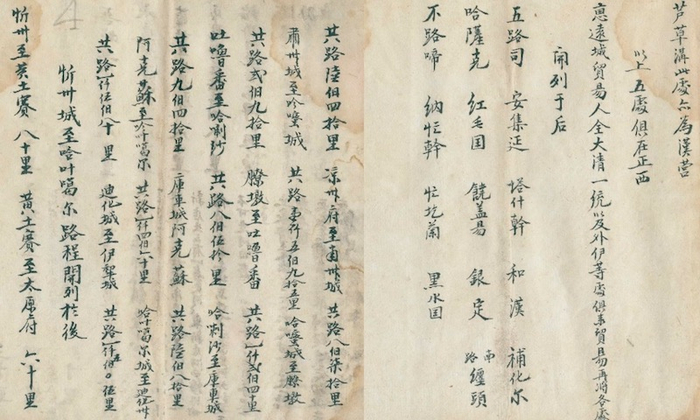 芦草溝此處亦為漢营
以上五處俱在正西
惠遠城貿易人全大清一統以及外伊等處俱来貿易再将各
開列于后
五路司 安集延 塔什幹 和漢 補化尔
哈薩克 紅毛国 饒盖易 銀定 南路纏頭
不路啼 纳忙幹 忙圪蘭 黒水国
共路陸佰四拾里 凉州府至甫州城 共路八佰柒拾里
甫州城至哈嗼城 共路壹仟五佰九拾五里 哈嗼城至瞭墩
共路弍佰九拾里 瞭墩至吐嚕番 共路一仟弍佰四里
吐嚕番至哈喇沙 共路八佰伍拾里 哈喇沙至庫車城
共路九佰四拾里 庫車城阿克蘇 共路陸佰八拾里
阿克蘇至哈什噶尔 共路一仟四佰六十里 哈什噶尔城至迪化州
共路仟伍佰八十里 迪化城至伊犁城 共路一仟佰〇伍里
忻州城至哈什噶尔路程開列於後
忻州至黄土賽 八十里 黄土賽至太原府 六十里